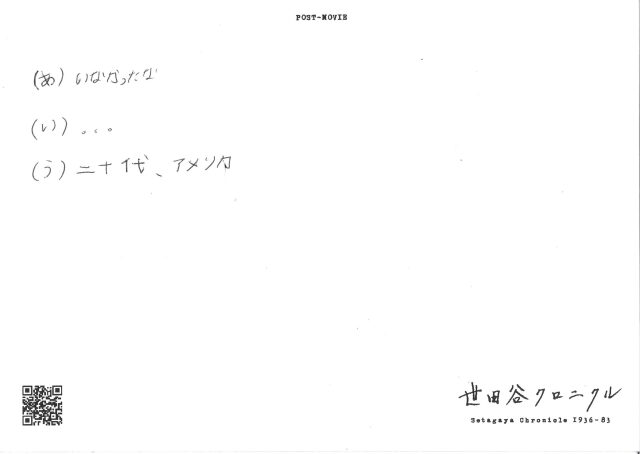 POST-MOVIE
(あ) いなかったな
(い) 。。。
(う) 二十代、アメリカ
世田谷クロニクル
Setagaya Chronicle 1936-83